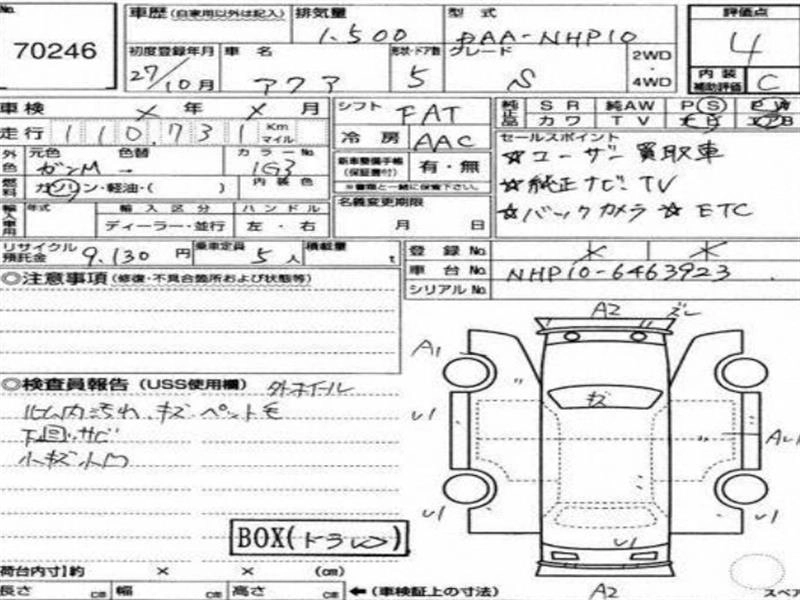 No. 70246
車歴 (自家用以外は記入) 排気量 1.500 型式 DAA-NHP10 評価点 4
初度登録年月 27/10月 車名 アクア 形状・ドア数 5 グレード S 2WD・4WD 内装補助評価 C
車検 × 年 × 月 シフト FAT 純正品 SR 純AW PS PW
走行 110,731 Km マイル 冷房 AAC カワ TV ナビ エアB
外色 元色 ガンM 色替 → カラーNo. 1G3 新車整備手帳(保証書付) 有・無 セールスポイント
燃料 ガソリン・軽油・( ) 内装色 ※書類と一緒に保管下さい。 ☆ユーザー買取車
輸入車用 年式 輸入区分 ハンドル 名義変更期限 ☆純正ナビTV
ディーラー・並行 左・右 月 日 ☆バックカメラ ☆ETC
リサイクル預託金 9.130 円 乗車定員 5人 積載量 t 登録No. × ×
車台No. NHP10-6463923
シリアルNo.
◎注意事項 (修復・不具合箇所および状態等)
A2 ズレ
A1
◎検査員報告 (USS使用欄) 外ホイール
キズ
内汚れ、キズ ペット毛
U1
下回りサビ
AU1
小キズ小凹
U1 U1
BOX(ドラレコ)
U1
荷台内寸約 × × (cm)
長さ cm 幅 cm 高さ cm ←(車検証上の寸法) A2 スペア